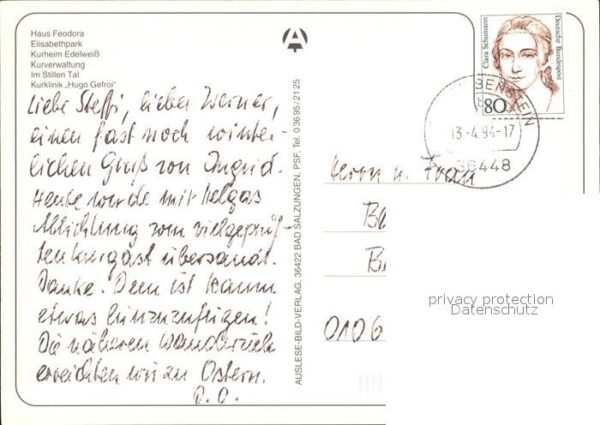 Haus Feodora
Elisabethpark
Kurheim Edelweiß
Kurverwaltung
Im Stillen Tal
Kurklinik „Hugo Gefroi"
Liebe Steffi, lieber Werner,
einen fast noch winter-
lichen Gruß von Ingrid.
Heute wurde mir Helgas
Ablichtung vom vielgeprüf-
ten Kurgast übersandt.
Danke. Dem ist kaum
etwas hinzuzufügen!
Die näheren Wanderziele
erreichten wir zu Ostern.
AUSLESE-BILD-VERLAG, 36422 BAD SALZUNGEN. PSF. Tel. 03695/2125
Clara Schumann
Deutsche Bundespost
80
BENSTEIN
13.-4.94-17
36448
Herrn u. Frau
B
0106
privacy protection
Datenschutz